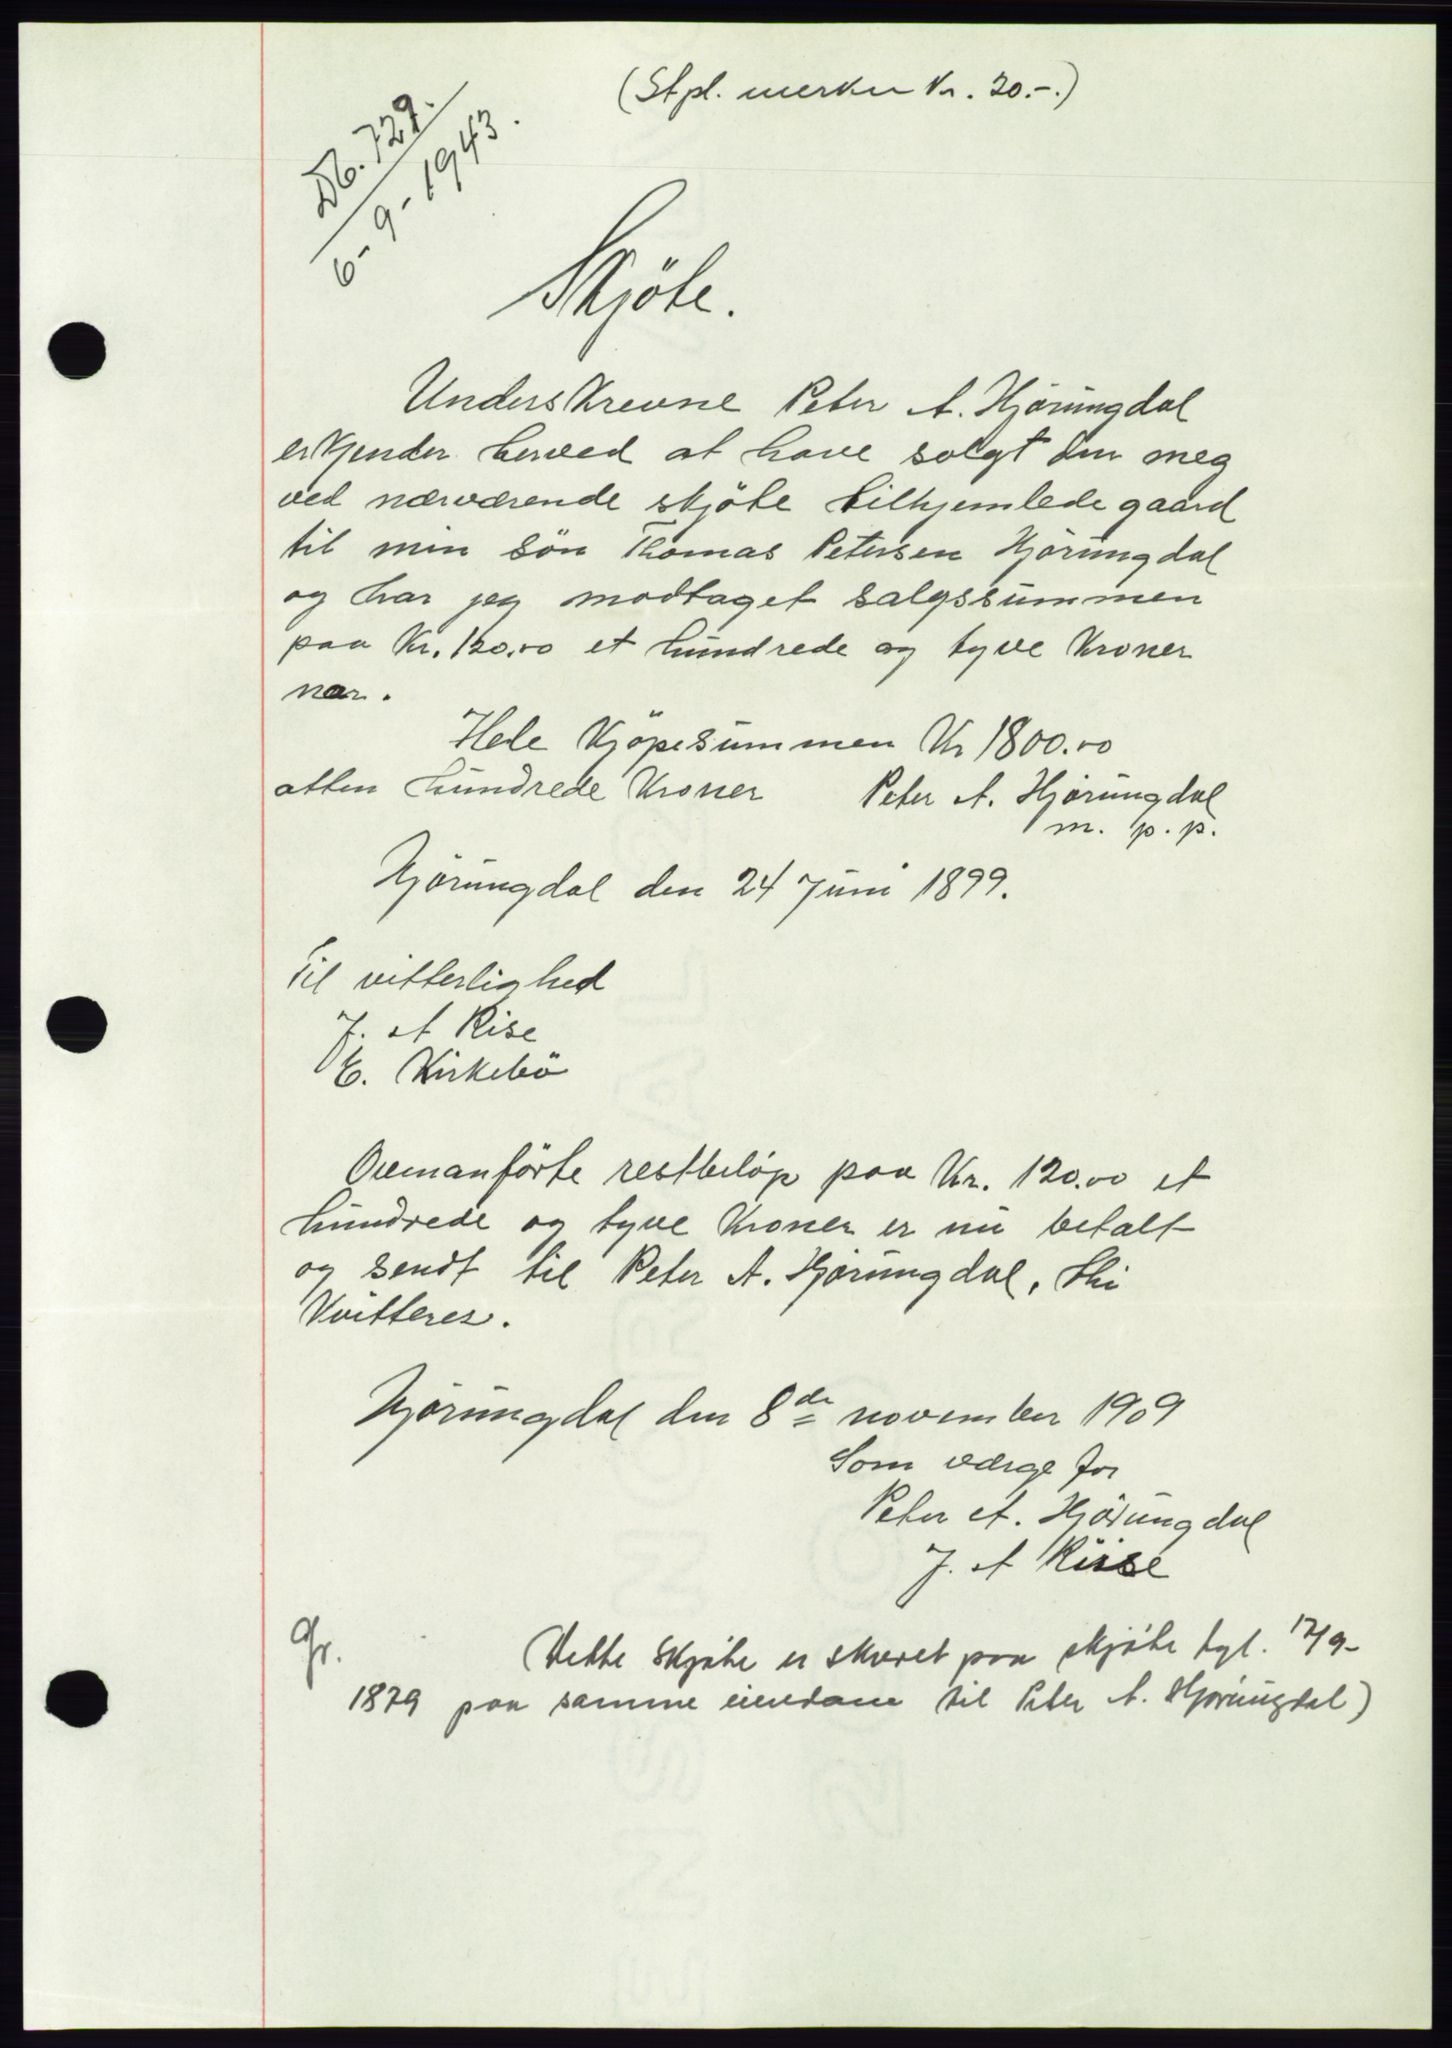 (Stpl. merker Kr. 20.-.)
Db. 729.
6-9-1943.
Skjöte.
Underskrevne Peter A. Hjörungdal
erkjender herved at have solgt den meg
ved nærværende skjöte tilhjemlede gaard
til min sön Thomas Petersen Hjörungdal
og har jeg modtaget salgssummen
paa Kr. 120.00 et hundrede og tyve Kroner
nar.
Hele Kjöpesummen Kr 1800.00
atten hundrede Kroner Peter A. Hjörungdal
m. p. p.
Hjörungdal den 24 Juni 1899.
Til vitterlighed
J. A Rise
E. Kirkebö
Ovenanförte restbelöp paa Kr. 120.00 et
hundrede og tyve Kroner er nu betalt
og sendt til Peter A. Hjörungdal, thi
Kvitteres.
Hjörungdal den 8de november 1909
Som værge for
Peter A. Hjörungdal
J. A Riise
Gr.
(Dette skjöte er skrevet paa skjöte tgl. 17/9-
1879 paa samme eiendom til Peter A. Hjörungdal)